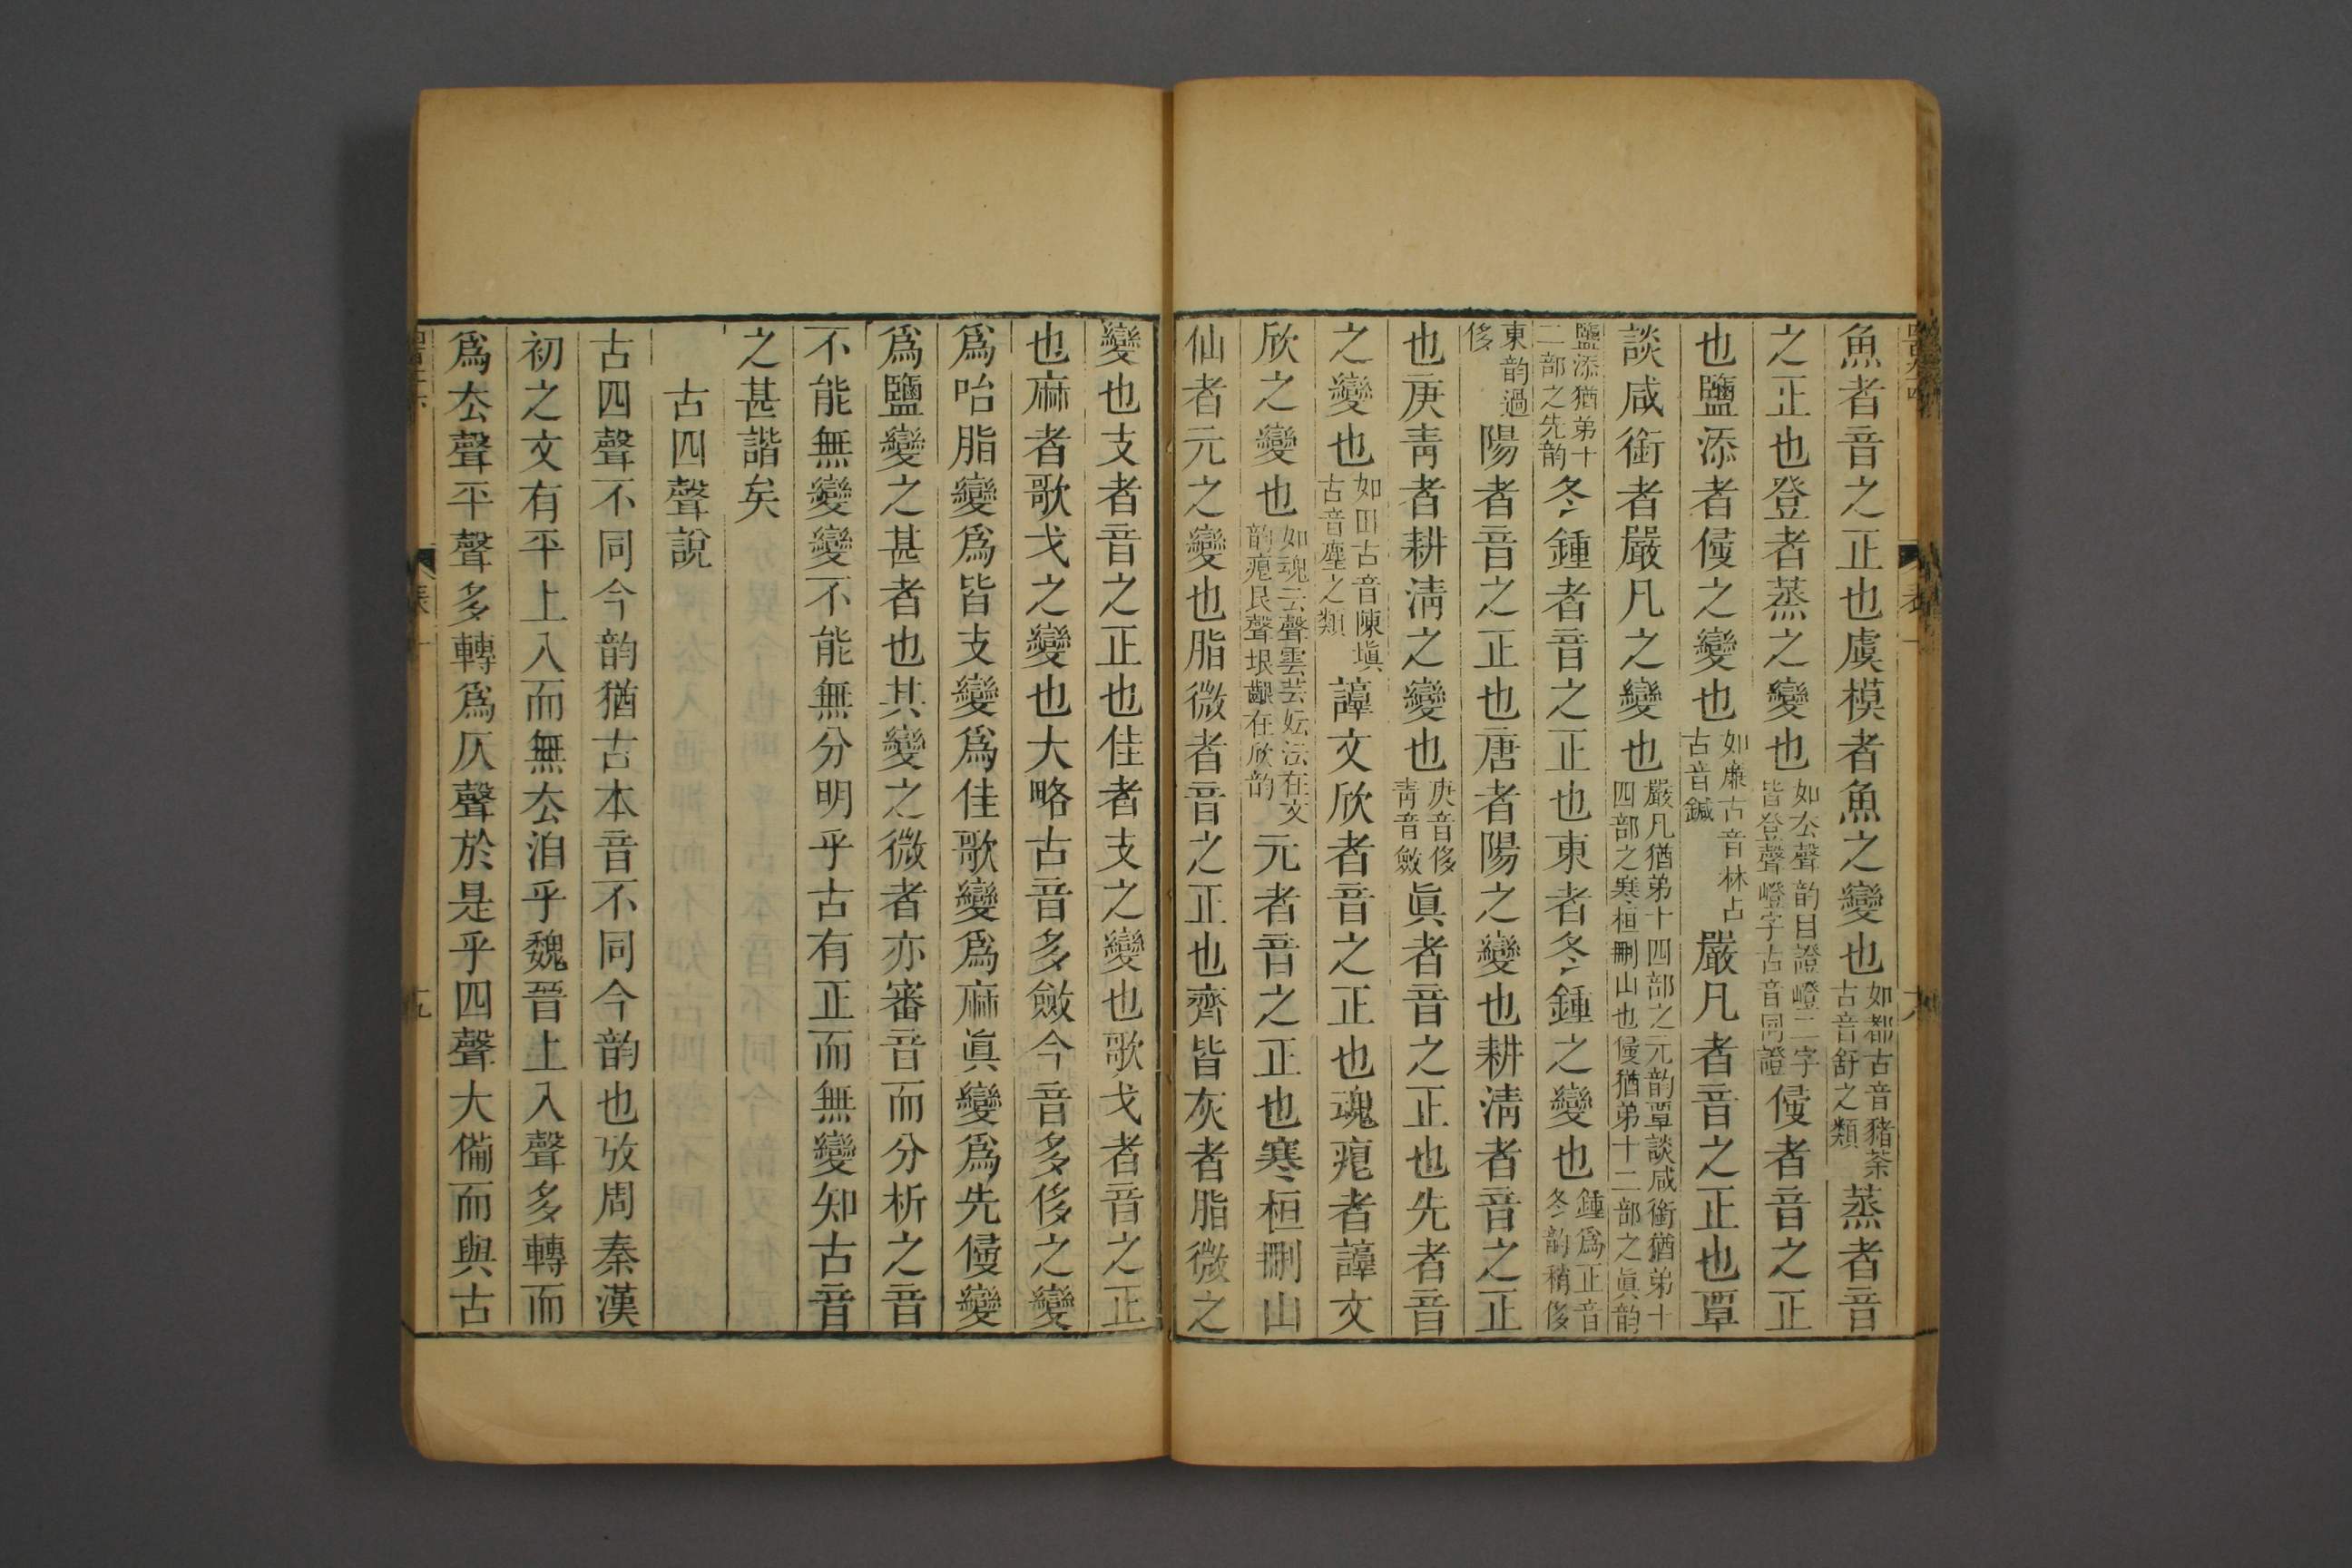 魚者音之正也虞模者魚之變也如都古音豬荼古音舒之類蒸者音
之正也登者蒸之變也如厺聲韵目證嶝二字皆登聲嶝字古音同證侵者音之正
也鹽添者侵之變也如廉古音林占古音鍼嚴凡者音之正也覃
談咸銜者嚴凡之變也嚴凡猶弟十四部之元韵覃談咸銜猶弟十四部之寒桓刪山也侵猶弟十二部之眞韵
鹽添猶弟十二部之先韵冬鍾者音之正也東者冬鍾之變也鍾爲正音冬韵稍侈
東韵過侈陽者音之正也唐者陽之變也耕淸者音之正
也庚靑者耕淸之變也庚音侈靑音斂眞者音之正也先者音
之變也如田古音陳塡古音塵之類諄文欣者音之正也魂痕者諄文
欣之變也如魂云聲雲芸妘沄在文韵痕艮聲垠齦在欣韵元者音之正也寒桓刪山
仙者元之變也脂微者音之正也齊皆灰者脂微之
變也支者音之正也佳者支之變也歌戈者音之正
也麻者歌戈之變也大略古音多斂今音多侈之變
爲咍脂變爲皆支變爲佳歌變爲麻眞變爲先侵變
爲鹽變之甚者也其變之微者亦審音而分析之音
不能無變變不能無分明乎古有正而無變知古音
之甚諧矣
古四聲說
古四聲不同今韵猶古本音不同今韵也攷周秦漢
初之文有平上入而無厺洎乎魏晉上入聲多轉而
爲厺聲平聲多轉爲仄聲於是乎四聲大備而與古
表一
九